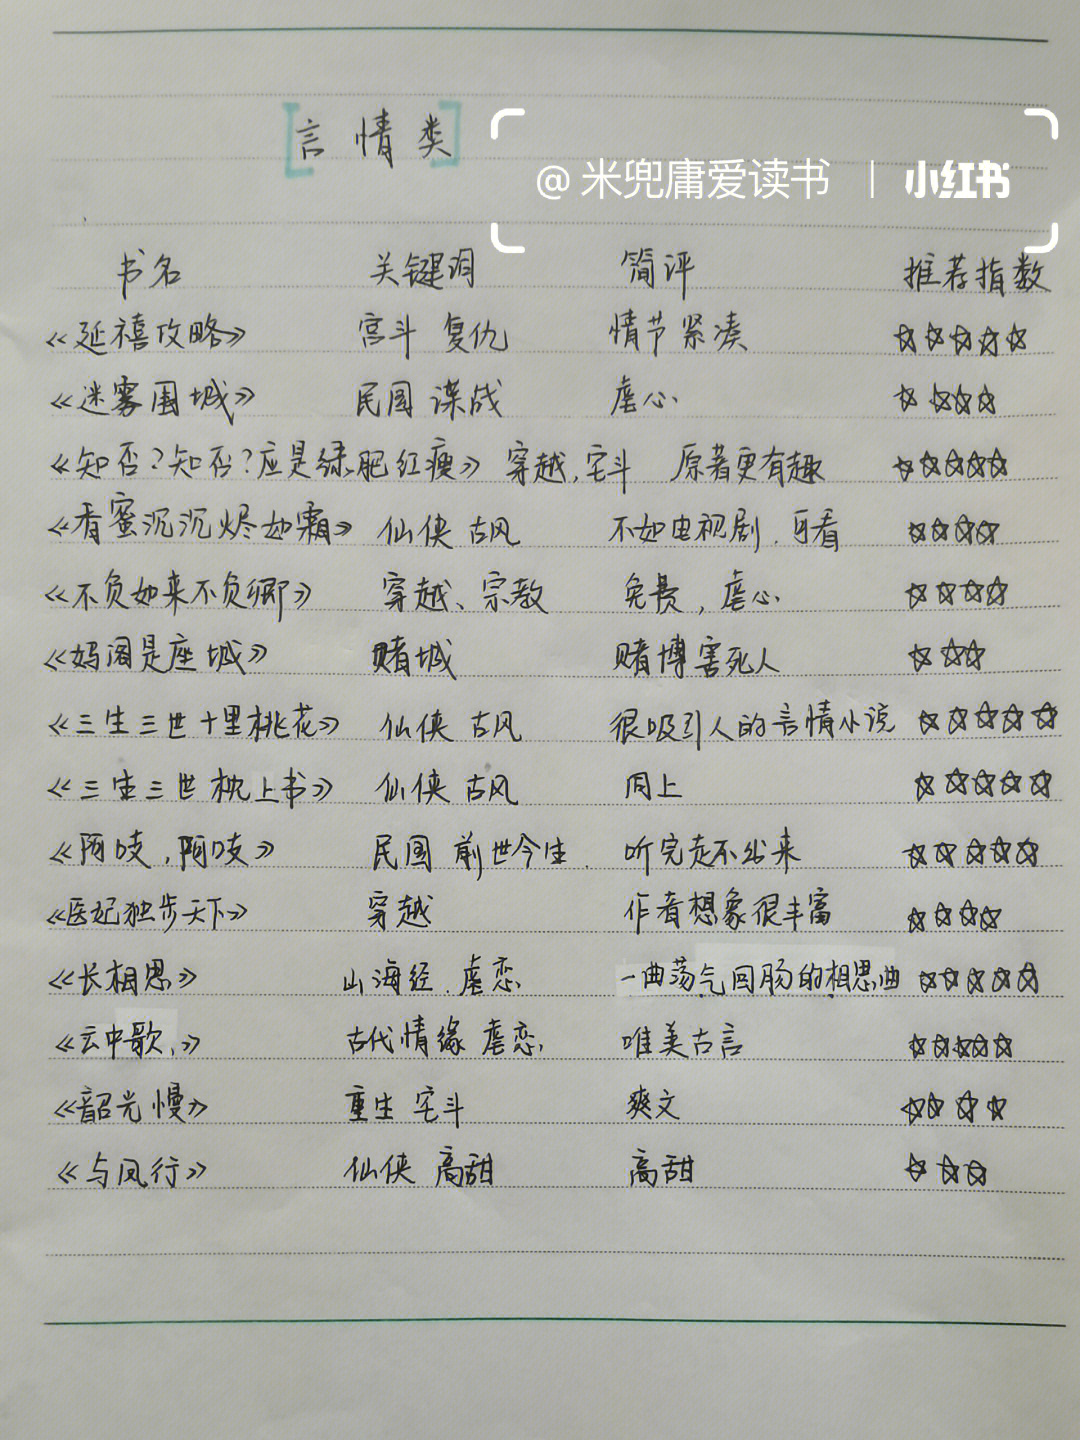 言情类
@米兜庸爱读书 | 小红书
书名 关键词 简评 推荐指数
《延禧攻略》 宫斗 复仇 情节紧凑 ☆☆☆☆☆
《迷雾围城》 民国 谍战 虐心 ☆☆☆☆
《知否?知否?应是绿肥红瘦》 穿越,宅斗 原著更有趣 ☆☆☆☆☆
《香蜜沉沉烬如霜》 仙侠 古风 不如电视剧.可看 ☆☆☆☆
《不负如来不负卿》 穿越、宗教 免费,虐心 ☆☆☆☆
《妈阁是座城》 赌城 赌博害死人 ☆☆☆
《三生三世十里桃花》 仙侠 古风 很吸引人的言情小说 ☆☆☆☆☆
《三生三世枕上书》 仙侠 古风 同上 ☆☆☆☆☆
《阿吱,阿吱》 民国 前世今生. 听完走不出来 ☆☆☆☆☆
《医妃独步天下》 穿越 作者想象很丰富 ☆☆☆☆
《长相思》 山海经.虐恋 一曲荡气回肠的相思曲 ☆☆☆☆☆
《云中歌、》 古代情缘 虐恋, 唯美古言 ☆☆☆☆☆
《韶光慢》 重生 宅斗 爽文 ☆☆☆☆
《与凤行》 仙侠 高甜 高甜 ☆☆☆